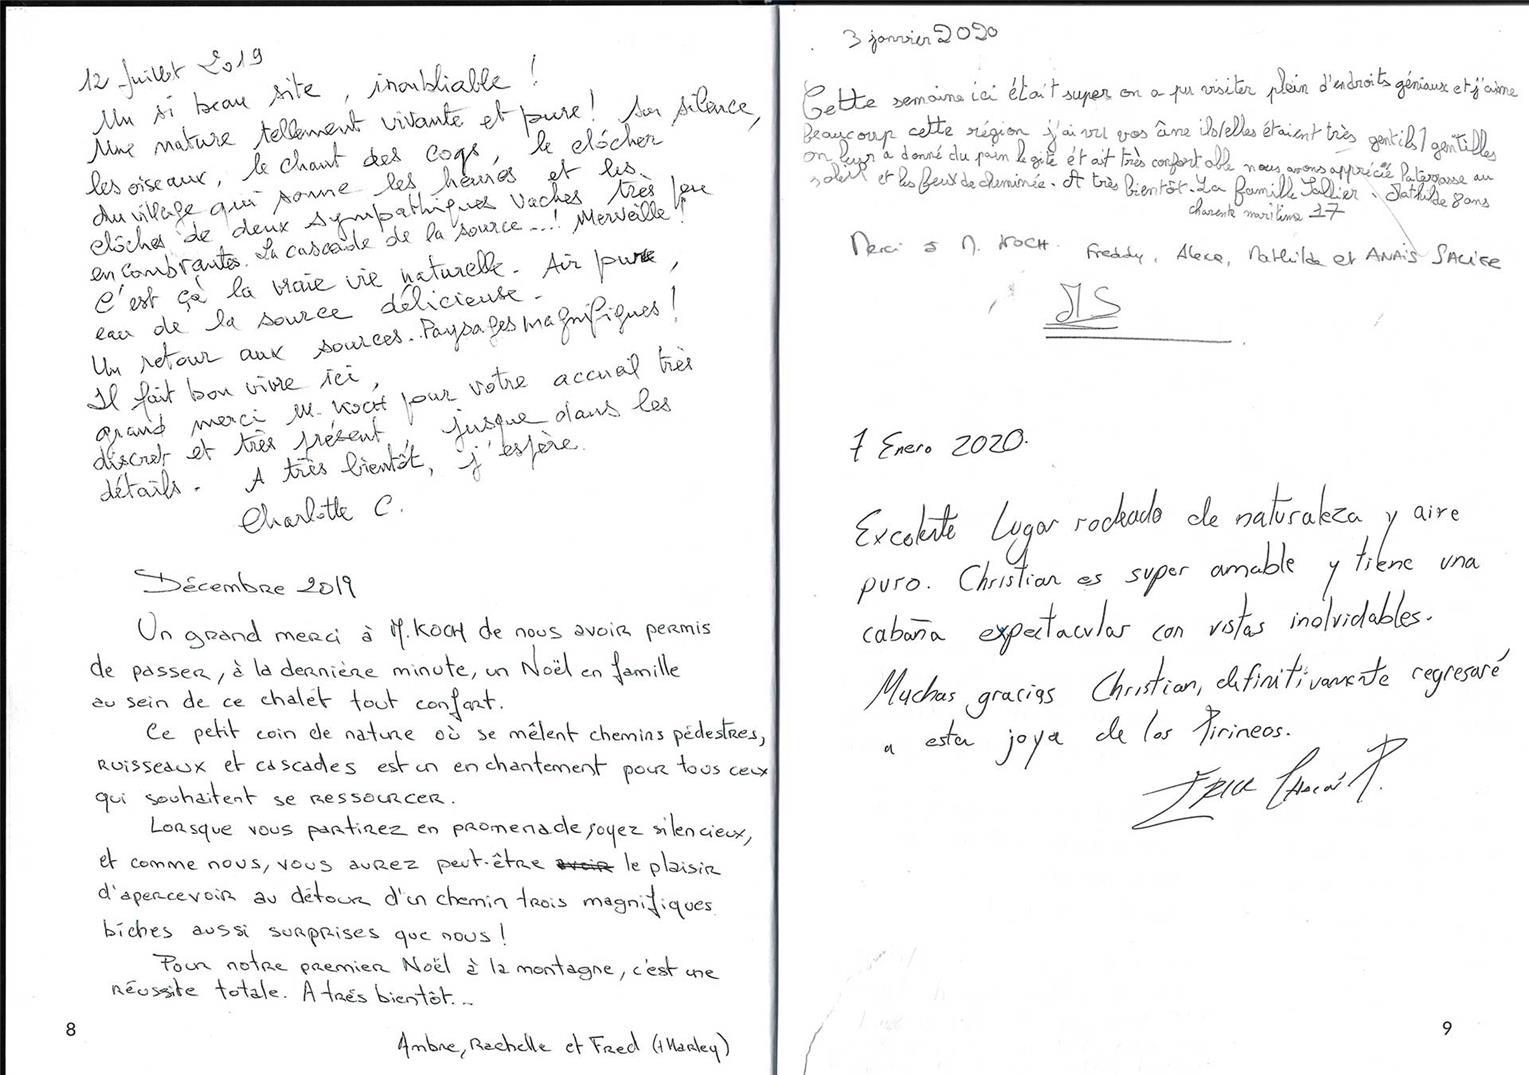 12 Juillet 2019
Un si beau site, inoubliable !
Une nature tellement vivante et pure ! Son silence,
les oiseaux, le chant des coqs, le clócher
du village qui sonne les heures et les
clôches de deux sympathiques vaches très peu
encombrantes. La cascade de la source ...! Merveille !
C'est çà la vraie vie naturelle. Air pure,
eau de la source délicieuse.
Un retour aux sources. Paysages magnifiques !
Il fait bon vivre ici,
grand merci M. KOCH pour votre accueil très
discret et très présent, jusque dans les
détails. A très bientôt, j'espère.
Charlotte C.
Décembre 2019
Un grand merci à M. KOCH de nous avoir permis
de passer, à la dernière minute, un Noël en famille
au sein de ce chalet tout confort.
Ce petit coin de nature où se mêlent chemins pédestres,
ruisseaux et cascades est un enchantement pour tous ceux
qui souhaitent se ressourcer.
Lorsque vous partirez en promenade, soyez silencieux,
et comme nous, vous aurez peut-être avoir le plaisir
d'apercevoir au détour d'un chemin trois magnifiques
biches aussi surprises que nous !
Pour notre premier Noël à la montagne, c'est une
réussite totale. A trés bientôt...
Ambre, Rachelle et Fred (+ Harley)
8
3 janvier 2020
Cette semaine ici était super on a pu visiter plein d'endroits géniaux et j'aime
beaucoup cette région j'ai vu vos âne ils/elles étaient très gentils/gentilles
on leur a donné du pain le gite était très confortable nous avons apprécié la terrasse au
soleil et les feux de cheminée. A très bientôt. La famille . Mathilde 8 ans
charente maritime 17
Merci à M. KOCH. Freddy, , Mathilde et ANAÏS
MS
7 Enero 2020.
Excelente Lugar rodeado de naturaleza y aire
puro. Christian es super amable y tiene una
cabaña expectacular con vistas inolvidables.
Muchas gracias Christian, definitivamente regresaré
a esta joya de los Pirineos.
ERICK
9